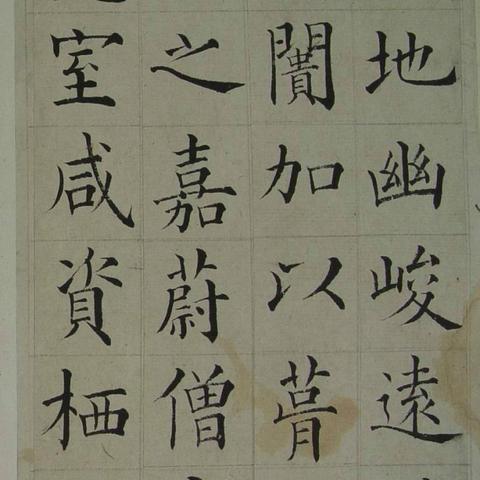 地幽峻遠
闠加以
之嘉蔚僧
室咸資栖